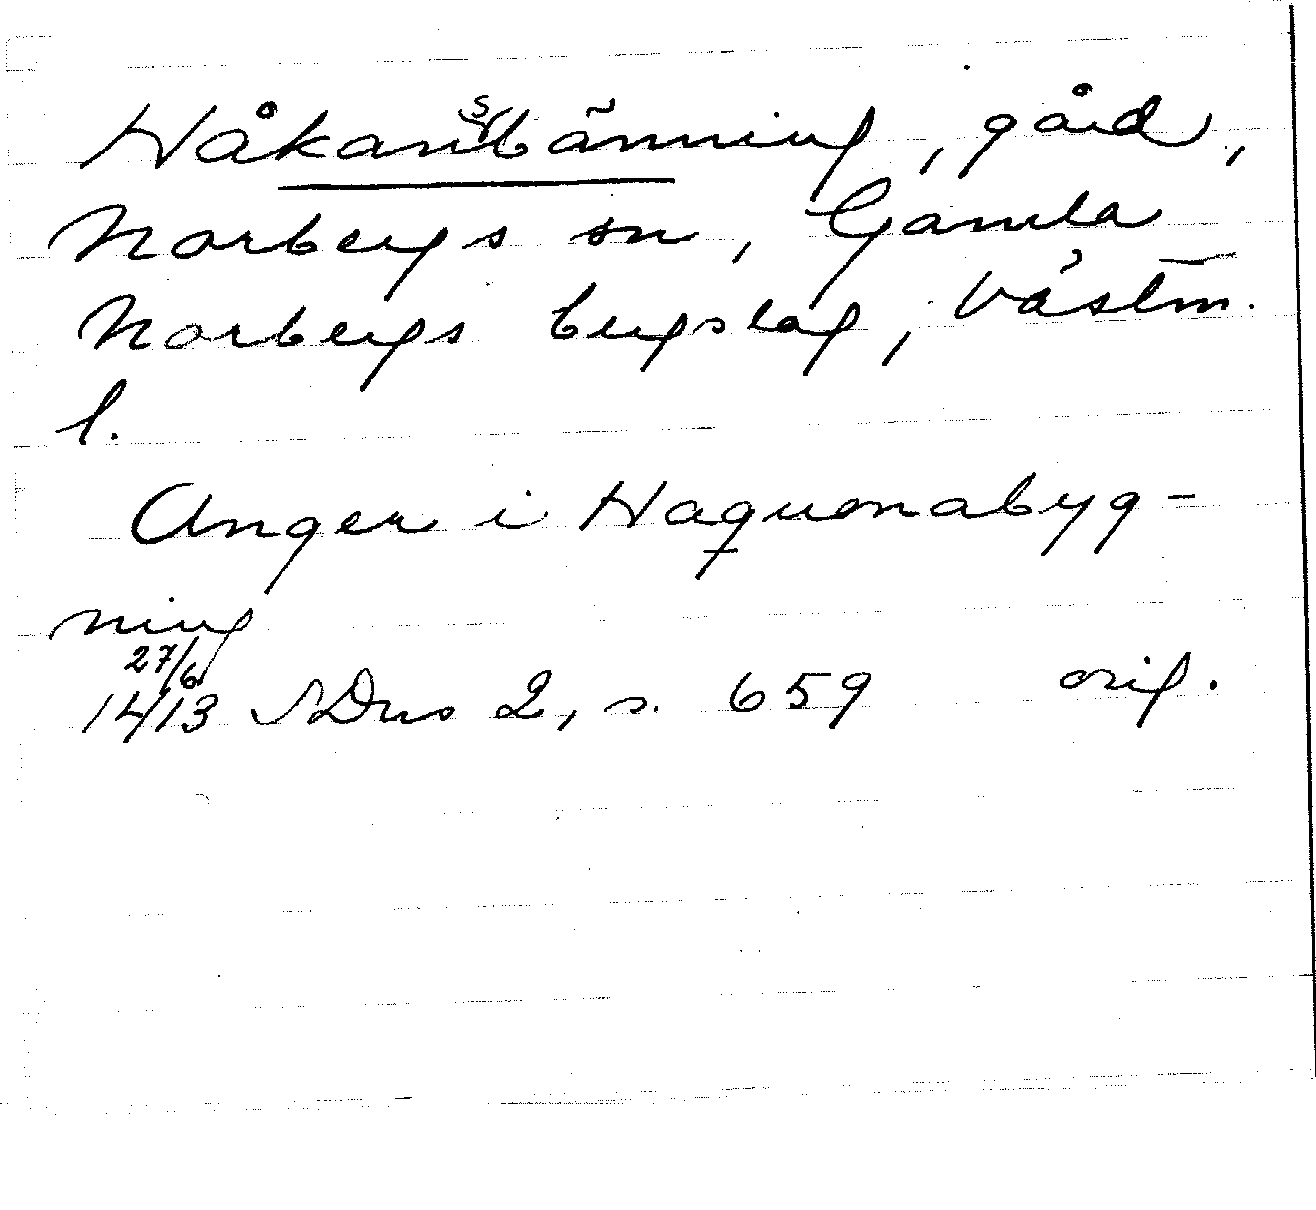 Håkansbänning, gård,
Norbergs sn, Gamla
Norbergs bergslag, Västm.
l.
Anger i Haquonabyg-
ning
27/6
1413 SDns 2, s. 659 orig.